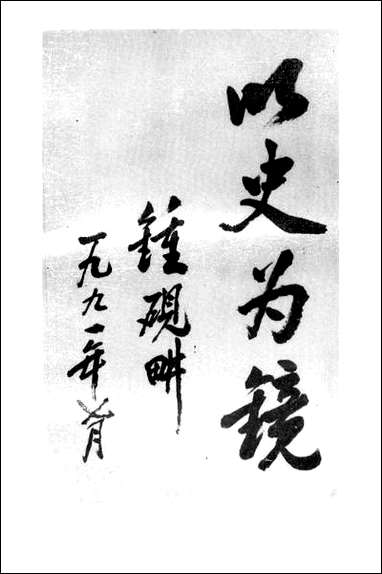 以史为镜
鍾砚畊
一九九一年七月